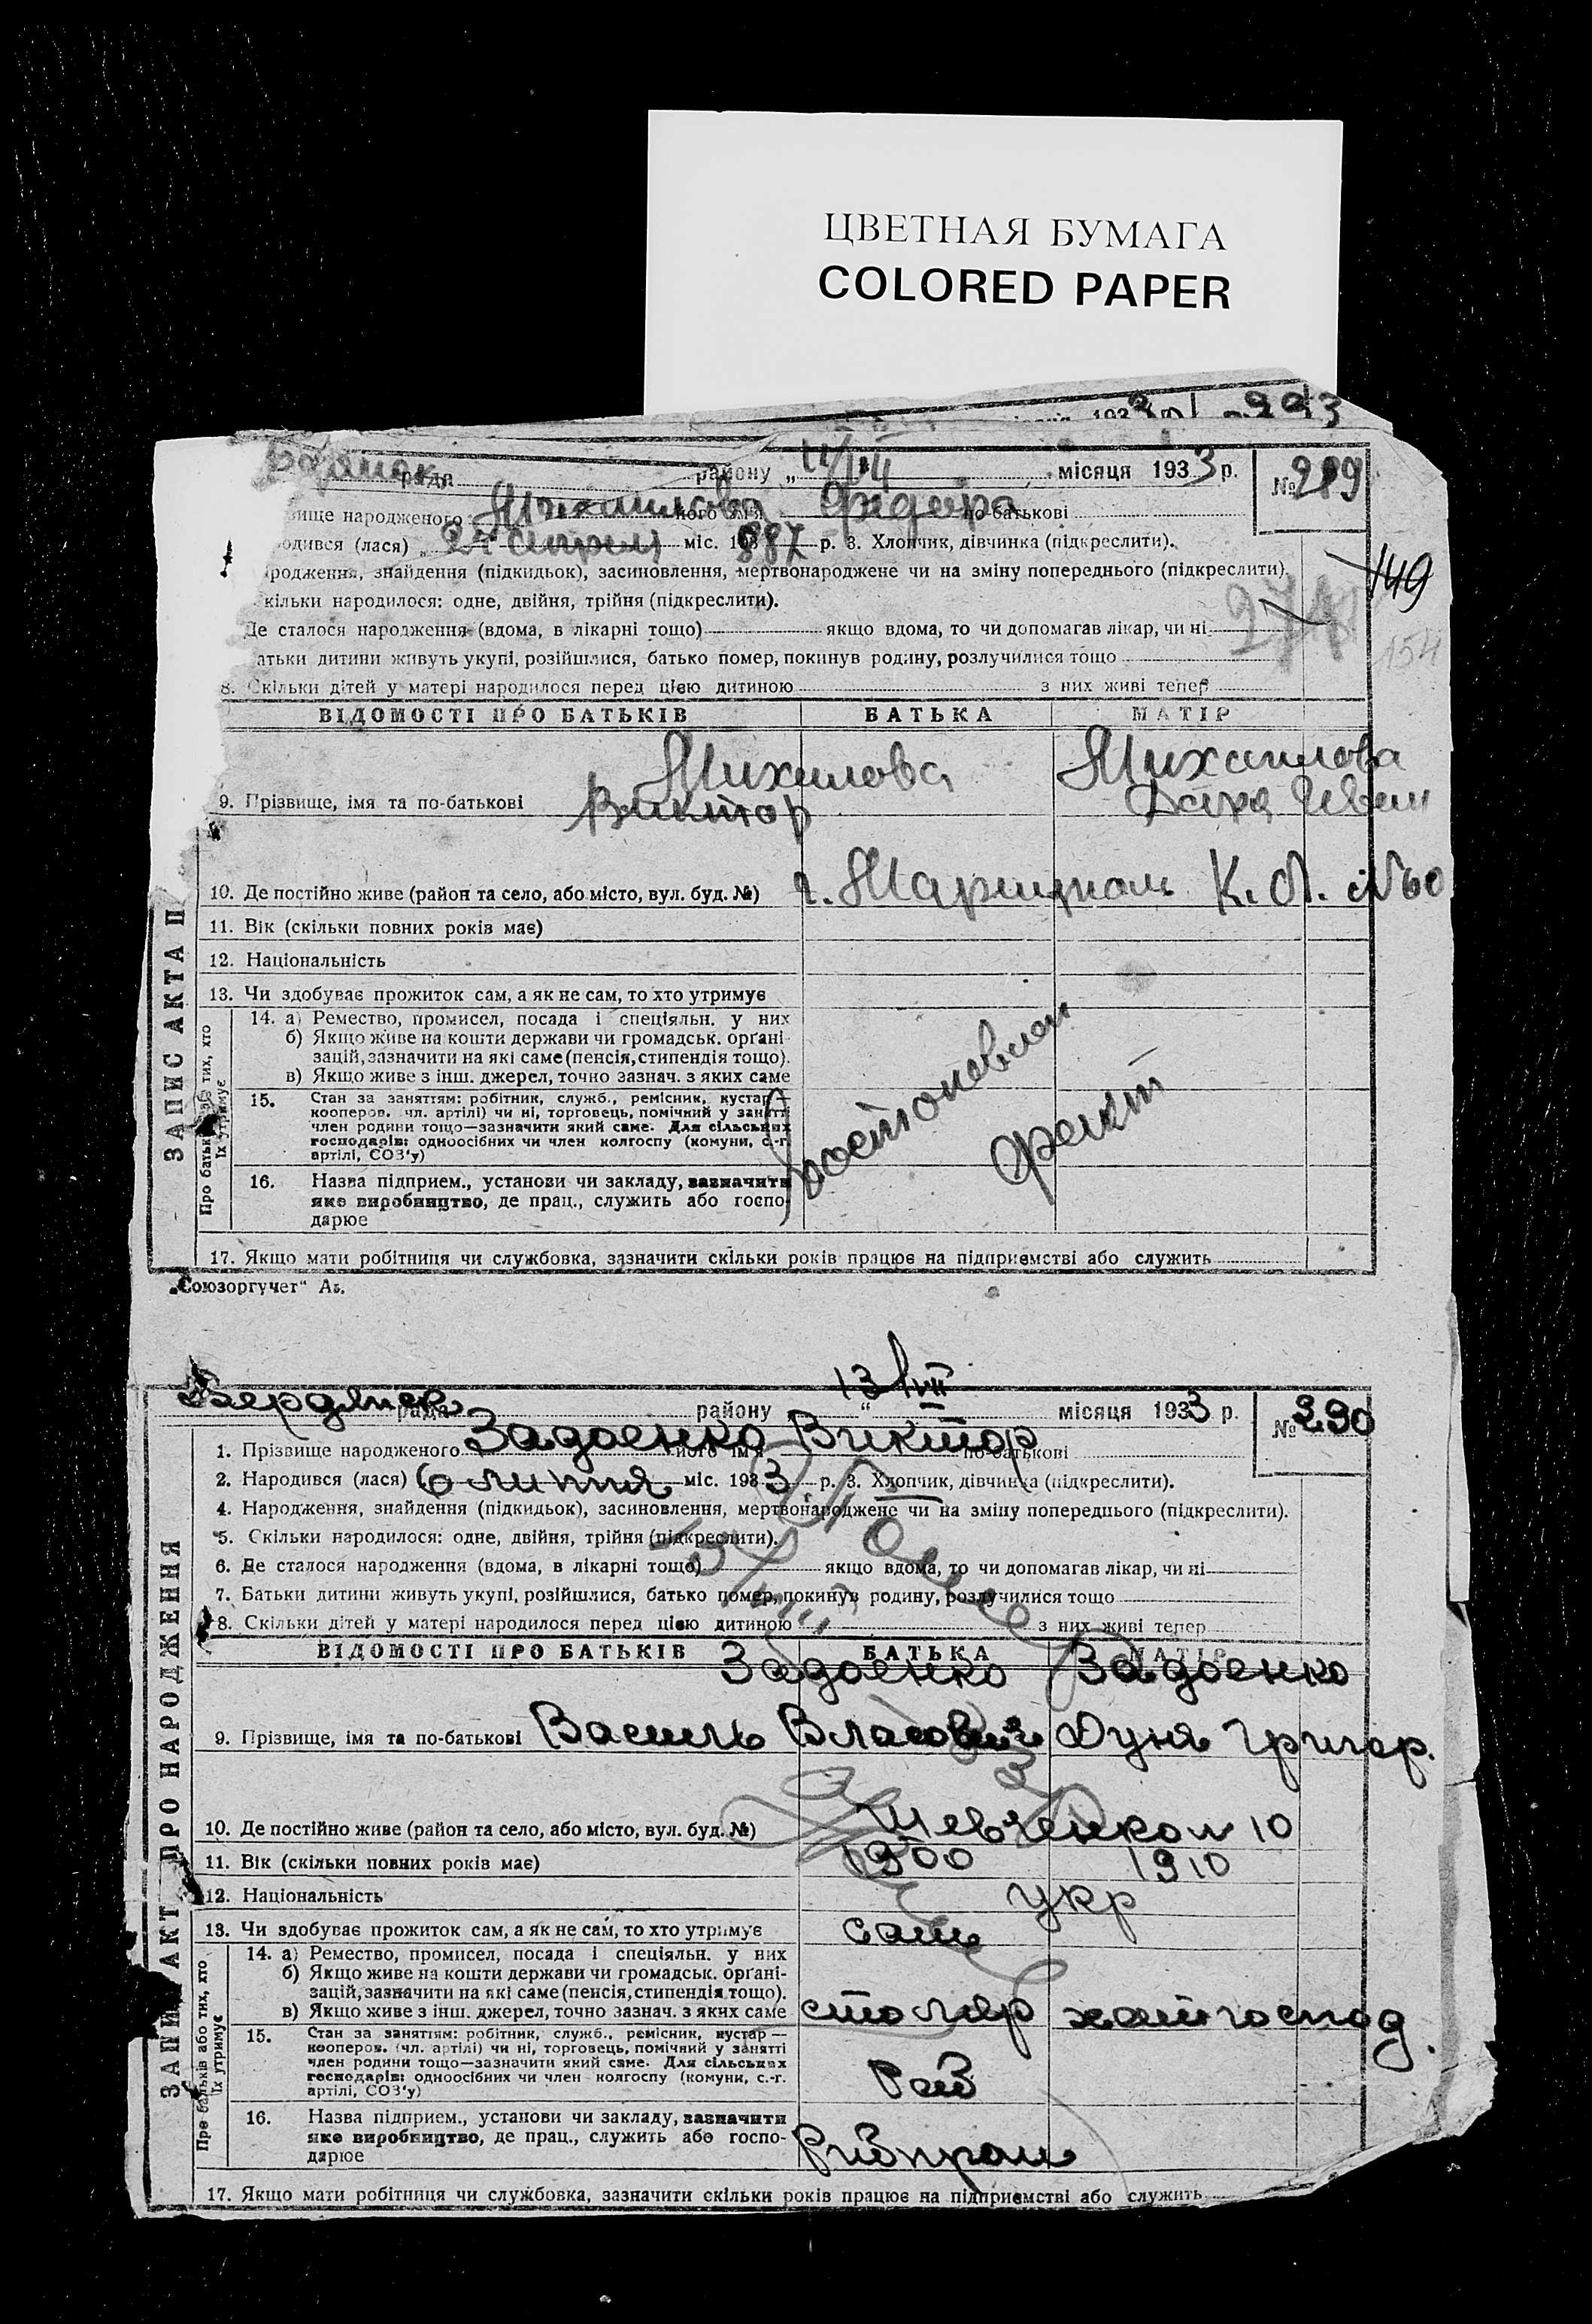 ЦВЕТНАЯ БУМАГА
COLORED PAPER
1933 293
рада району „ місяця 1933 р. № 289
вище народженого Михаилова його ім'я по-батькові
одився (лася) „ 24 апреля міс. 1887 р. 3. Хлопчик, дівчинка (підкреслити).
ародження, знайдення (підкидьок), засиновлення, мертвонароджене чи на зміну попереднього (підкреслити).
149
кільки народилося: одне, двійня, трійня (підкреслити).
274
Де сталося народження (вдома, в лікарні тощо) якщо вдома, то чи допомагав лікар, чи ні
атьки дитини живуть укупі, розійшлися, батько помер, покинув родину, розлучилися тощо
154
8. Скільки дітей у матері народилося перед цією дитиною з них живі тепер
ВІДОМОСТІ ПРО БАТЬКІВ БАТЬКА МАТІР
Михаилова Михаилова
9. Прізвище, імя та по-батькові Виктор Иван
10. Де постійно живе (район та село, або місто, вул. буд. №) г. Мариуполь К. №60
11. Вік (скільки повних років має)
12. Національність
13. Чи здобуває прожиток сам, а як не сам, то хто утримує
14. а) Ремество, промисел, посада і спеціяльн. у них
б) Якщо живе на кошти держави чи громадськ. органі-
зацій, зазначити на які саме (пенсія, стипендія тощо).
в) Якщо живе з інш. джерел, точно зазнач. з яких саме
15. Стан за заняттям: робітник, служб., ремісник, кустар—
кооперов. чл. артілі) чи ні, торговець, помічний у занятті
член родини тощо—зазначити який саме. Для сільських
господарів: одноосібних чи член колгоспу (комуни, с.-г.
артілі, СОЗ'у)
16. Назва підприєм., установи чи закладу, зазначити
яке виробництво, де прац., служить або госпо-
дарює
17. Якщо мати робітниця чи службовка, зазначити скільки років працює на підприємстві або служить
ЗАПИС АКТА П
Про батьків або тих, хто
їх утримує
„Союзоргучет“
13 VII
Бердянск рада району „ місяця 1933 р. № 290
1. Прізвище народженого Задоенко його ім'я Виктор по-батькові
2. Народився (лася) 6 липня міс. 1933 р. 3. Хлопчик, дівчинка (підкреслити).
4. Народження, знайдення (підкидьок), засиновлення, мертвонароджене чи на зміну попереднього (підкреслити).
5. Скільки народилося: одне, двійня, трійня (підкреслити).
6. Де сталося народження (вдома, в лікарні тощо) якщо вдома, то чи допомагав лікар, чи ні
7. Батьки дитини живуть укупі, розійшлися, батько помер, покинув родину, розлучилися тощо
8. Скільки дітей у матері народилося перед цією дитиною з них живі тепер
ВІДОМОСТІ ПРО БАТЬКІВ БАТЬКА МАТІР
Задоенко Задоенко
9. Прізвище, імя та по-батькові Василь Власович Дуня Григор.
10. Де постійно живе (район та село, або місто, вул. буд. №) Шевченком 10
11. Вік (скільки повних років має) 1900 1910
12. Національність укр
13. Чи здобуває прожиток сам, а як не сам, то хто утримує сам
14. а) Ремество, промисел, посада і спеціяльн. у них
б) Якщо живе на кошти держави чи громадськ. органі-
зацій, зазначити на які саме (пенсія, стипендія тощо).
в) Якщо живе з інш. джерел, точно зазнач. з яких саме столяр хатгоспод.
15. Стан за заняттям: робітник, служб., ремісник, кустар—
кооперов. (чл. артілі) чи ні, торговець, помічний у занятті
член родини тощо—зазначити який саме. Для сільських
господарів: одноосібних чи член колгоспу (комуни, с.-г.
артілі, СОЗ'у)
Роб
16. Назва підприєм., установи чи закладу, зазначити
яке виробництво, де прац., служить або госпо-
дарює
Рибпром
17. Якщо мати робітниця чи службовка, зазначити скільки років працює на підприємстві або служить
ЗАПИС АКТ ПРО НАРОДЖЕННЯ
Про батьків або тих, хто
їх утримує